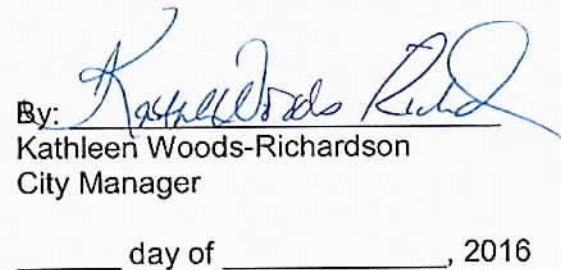 By: Kathleen Woods Richard
Kathleen Woods-Richardson
City Manager
______ day of ______________, 2016